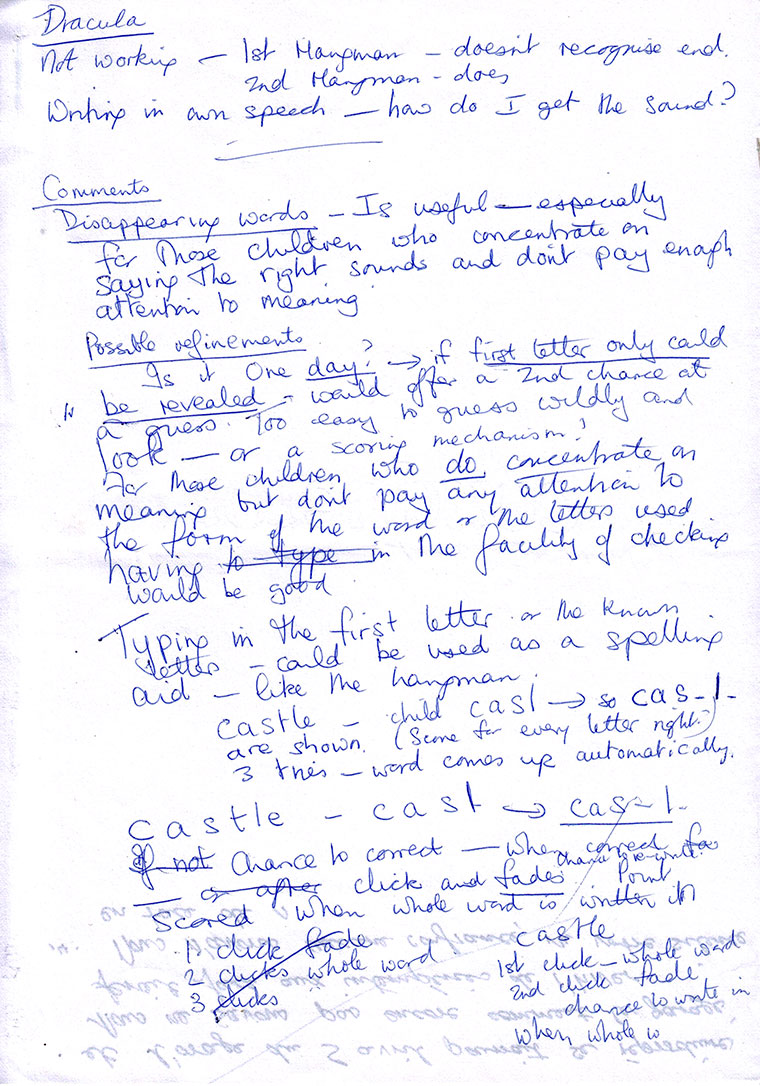 Dracula
Not working - 1st Hangman - doesn't recognise end.
2nd Hangman - does
Writing in own speech - how do I get the sound?
Comments
Disappearing words - Is useful - especially
for those children who concentrate on
saying the right sounds and don't pay enough
attention to meaning
Possible refinements
Is it One day? → if first letter only could
be revealed - would offer a 2nd chance at
a guess. Too easy to guess wildly and
look - or a scoring mechanism?
For those children who do concentrate on
meaning but don't pay any attention to
the form of the word or the letters used
having to type in the facility of checking
would be good
Typing in the first letter or the known
letters - could be used as a spelling
aid - like the hangman.
castle - child casl → so cas-l-
are shown. (Score for every letter right.)
3 tries - word comes up automatically.
castle - casl → cas-l-
If not Chance to correct - when correct
chance to re-write
or after click and fades Point
Scored when whole word is written in
1 click fade
2 clicks whole word
3 clicks
castle
1st click - whole word
2nd click fade
chance to write in
when whole w